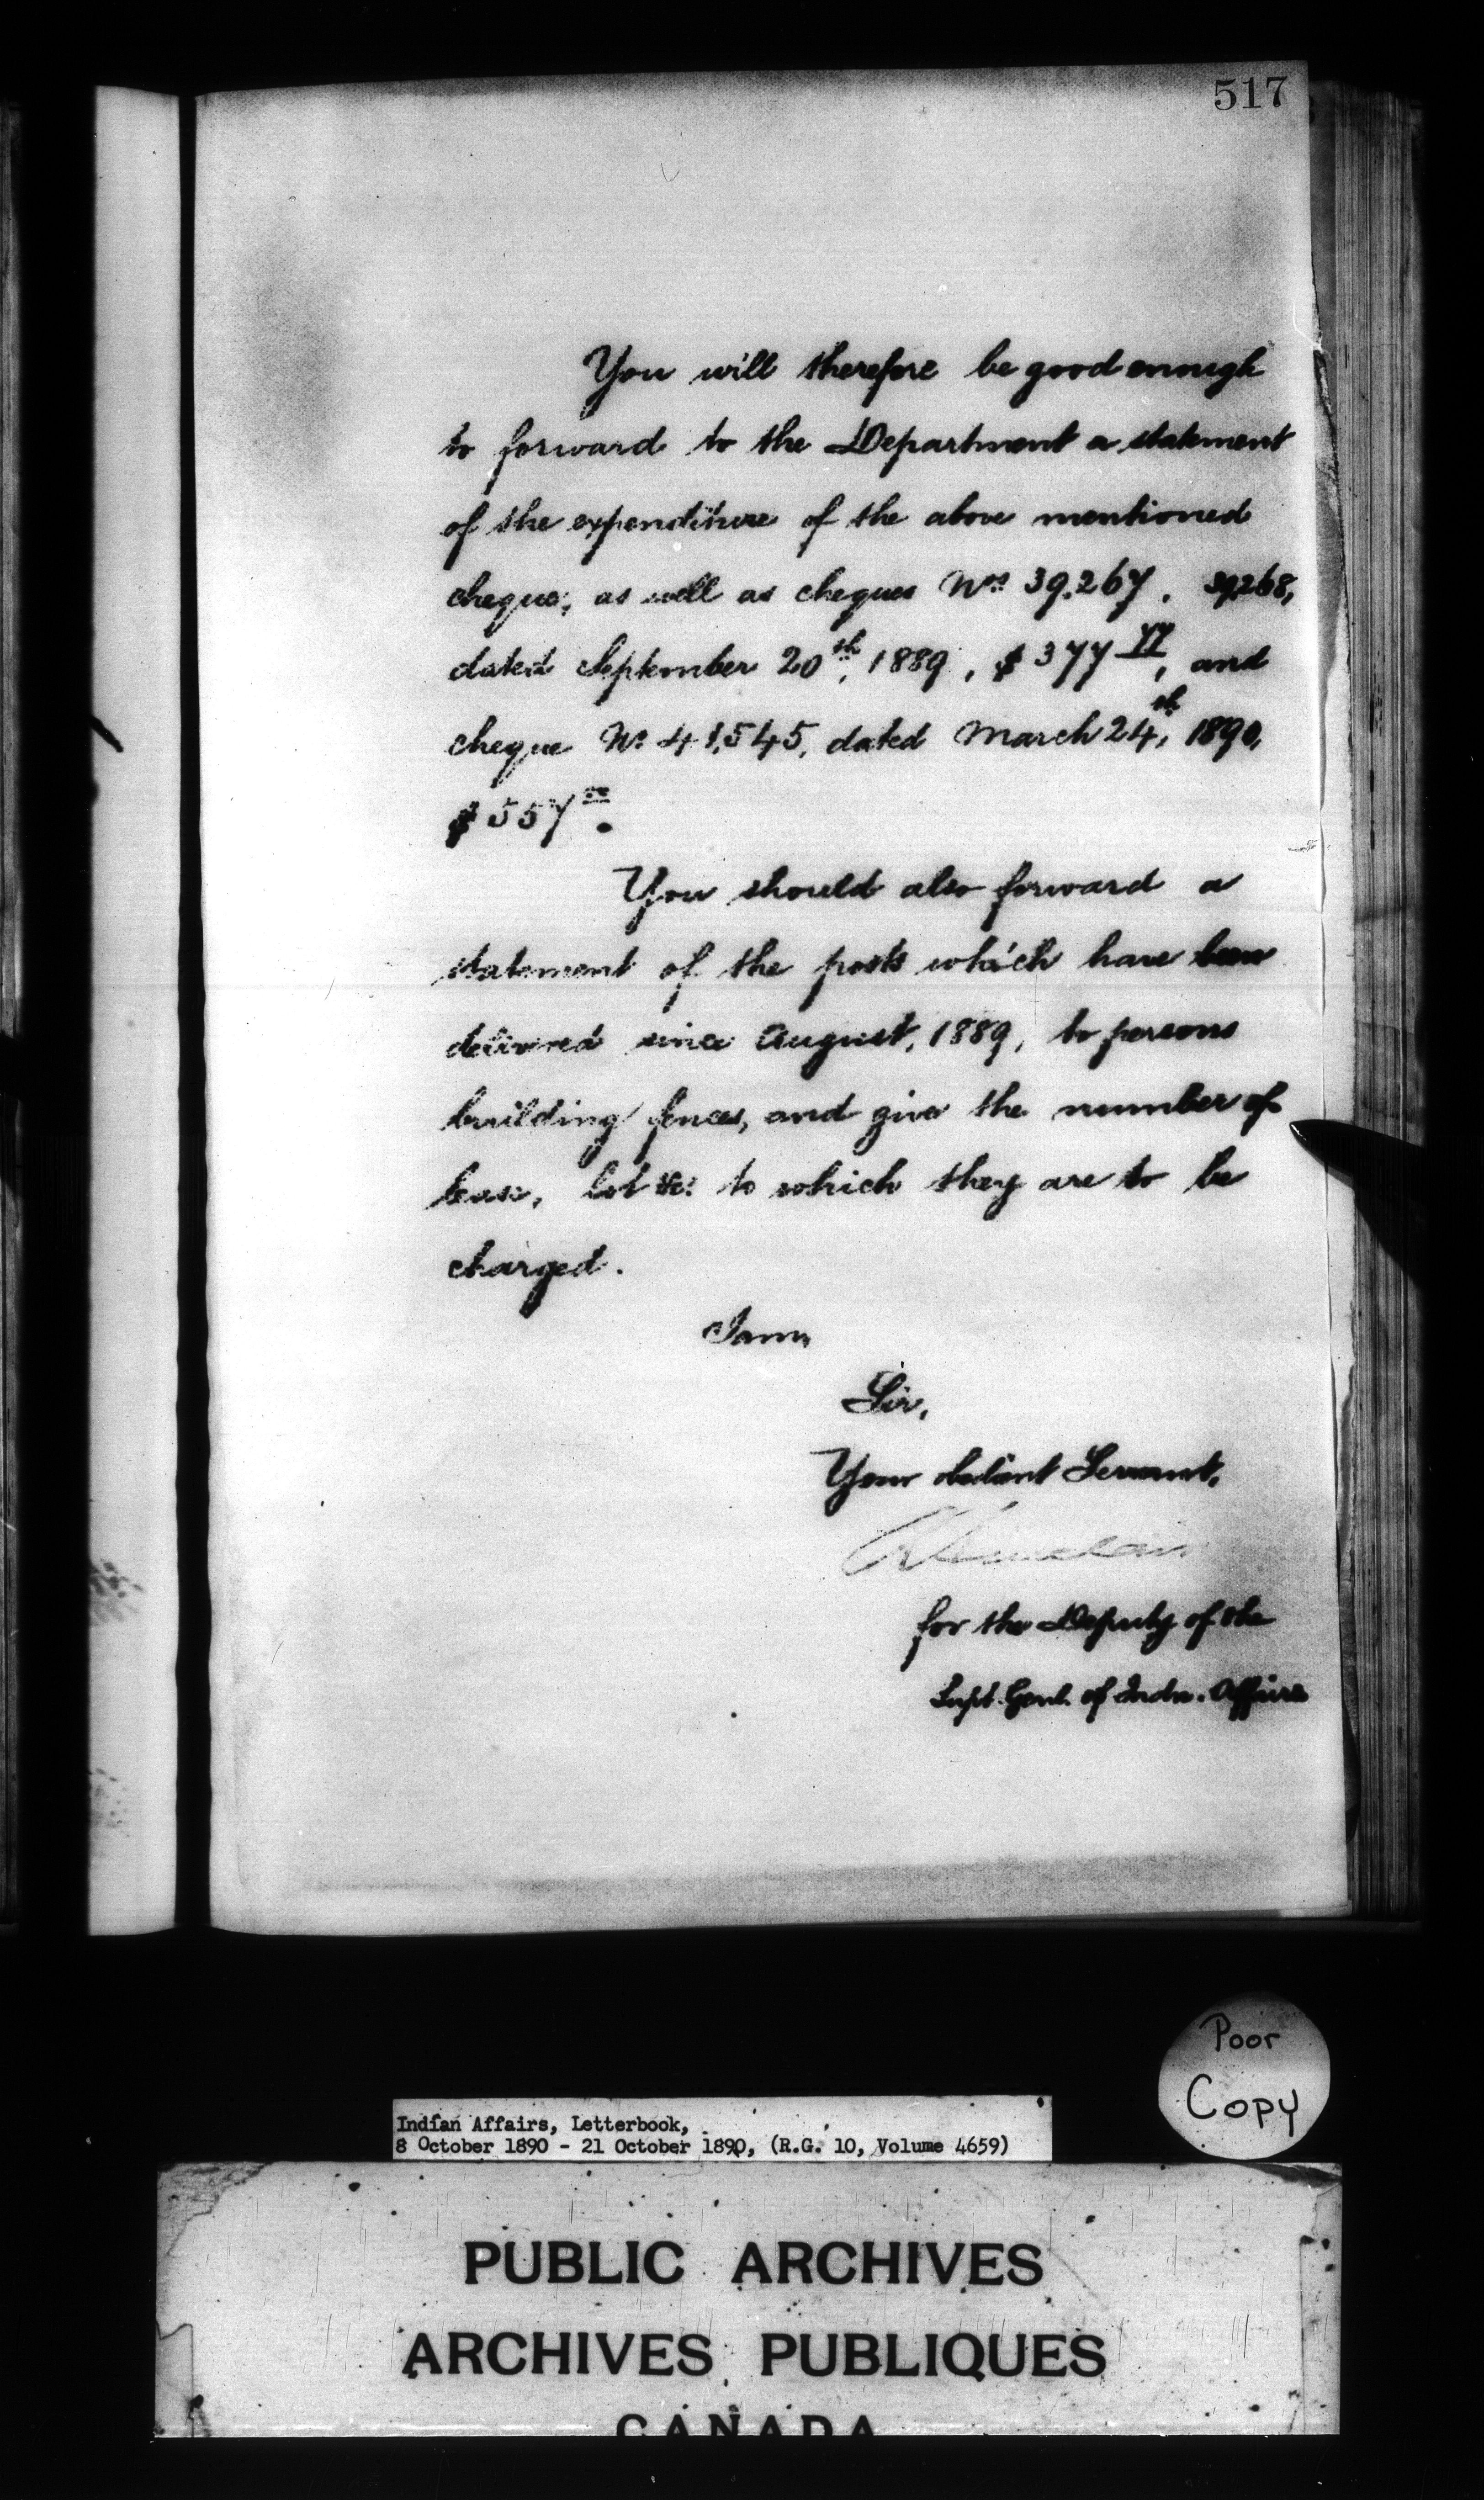 517
You will therefore be good enough
to forward to the Department a statement
of the expenditure of the above mentioned
cheque, as well as cheques Nos 39.267. 39268,
dated September 20th, 1889, $377 77, and
cheque No 41,545, dated March 24th, 1890,
$557 00.
You should also forward a
statement of the posts which have been
delivered since August, 1889, to persons
building fences, and give the number of
lease, lot &c: to which they are to be
charged.
I am,
Sir,
Your obedient Servant,
for the Deputy of the
Supt. Genl. of Indn. Affairs
Poor
Copy
Indian Affairs, Letterbook,
8 October 1890 - 21 October 1890, (R.G. 10, Volume 4659)
PUBLIC ARCHIVES
ARCHIVES PUBLIQUES
CANADA